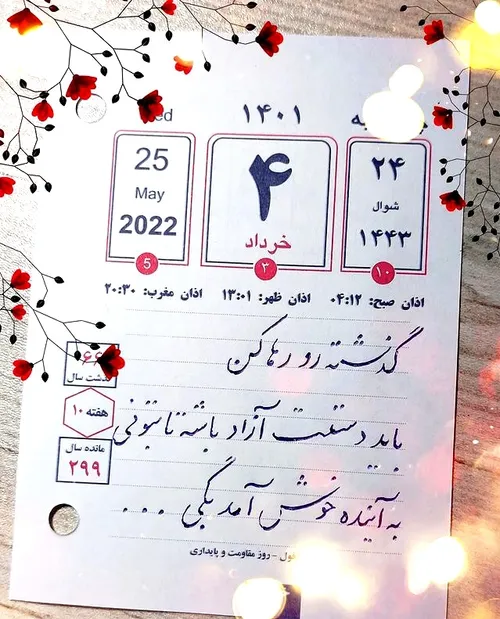 ۱۴۰۱
25
May
2022
5
۴
خرداد
۳
۲۴
شوال
۱۴۴۳
۱۰
اذان صبح: ۰۴:۱۲ اذان ظهر: ۱۳:۰۱ اذان مغرب: ۲۰:۳۰
گذشته رو رها کن
باید دستت آزاد باشه تا بتونی
به آینده خوش آمد بگی ...
۶۶
گذشت سال
هفته ۱۰
مانده سال
۲۹۹
- روز مقاومت و پایداری